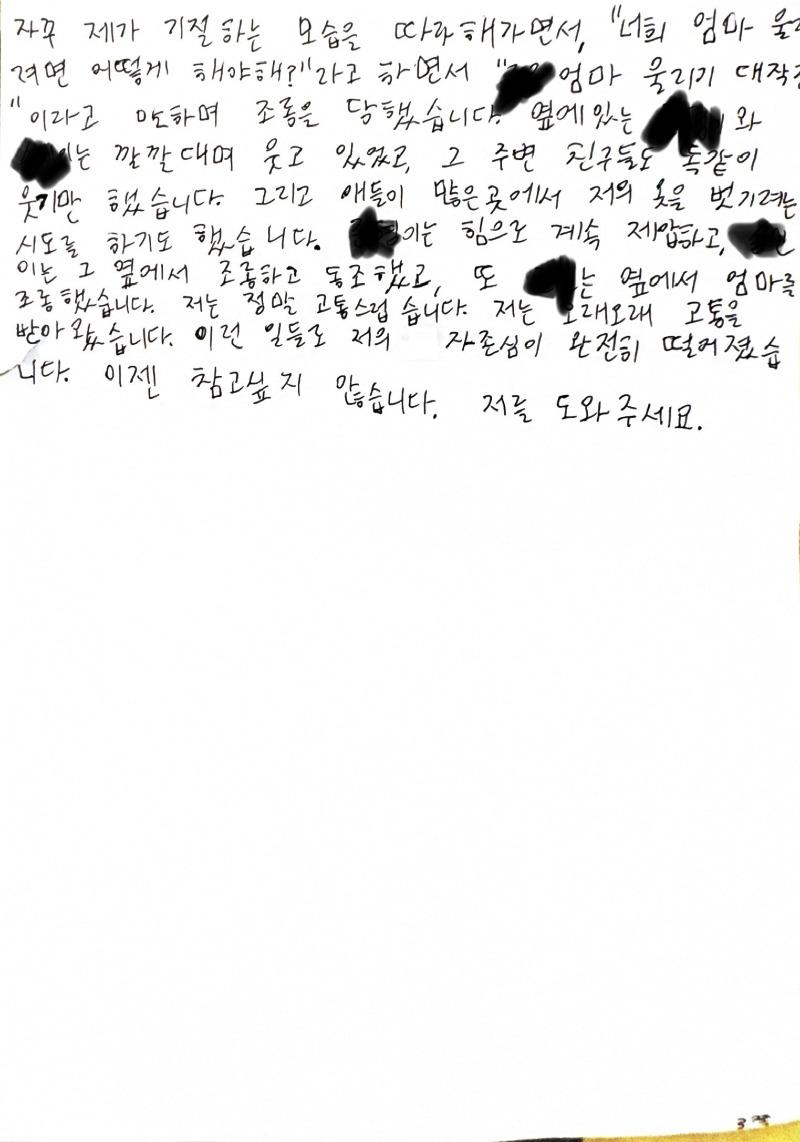 자꾸 제가 기절하는 모습을 따라해가면서, "너희 엄마 울
려면 어떻게 해야해?"라고 하면서 " 엄마 울리기 대작
"이라고 말하며 조롱을 당했습니다. 옆에있는 와
는 깔깔대며 웃고 있었고, 그 주변 친구들도 똑같이
웃기만 했습니다. 그리고 애들이 많은곳에서 저의 옷을 벗기려는
시도를 하기도 했습니다. 이는 힘으로 계속 제압하고,
이는 그 옆에서 조롱하고 동조했고, 또 는 옆에서 엄마를
조롱했습니다. 저는 정말 고통스럽습니다. 저는 오래오래 고통을
받아왔습니다. 이런 일들로 저의 자존심이 완전히 떨어졌습
니다. 이젠 참고싶지 않습니다. 저를 도와주세요.